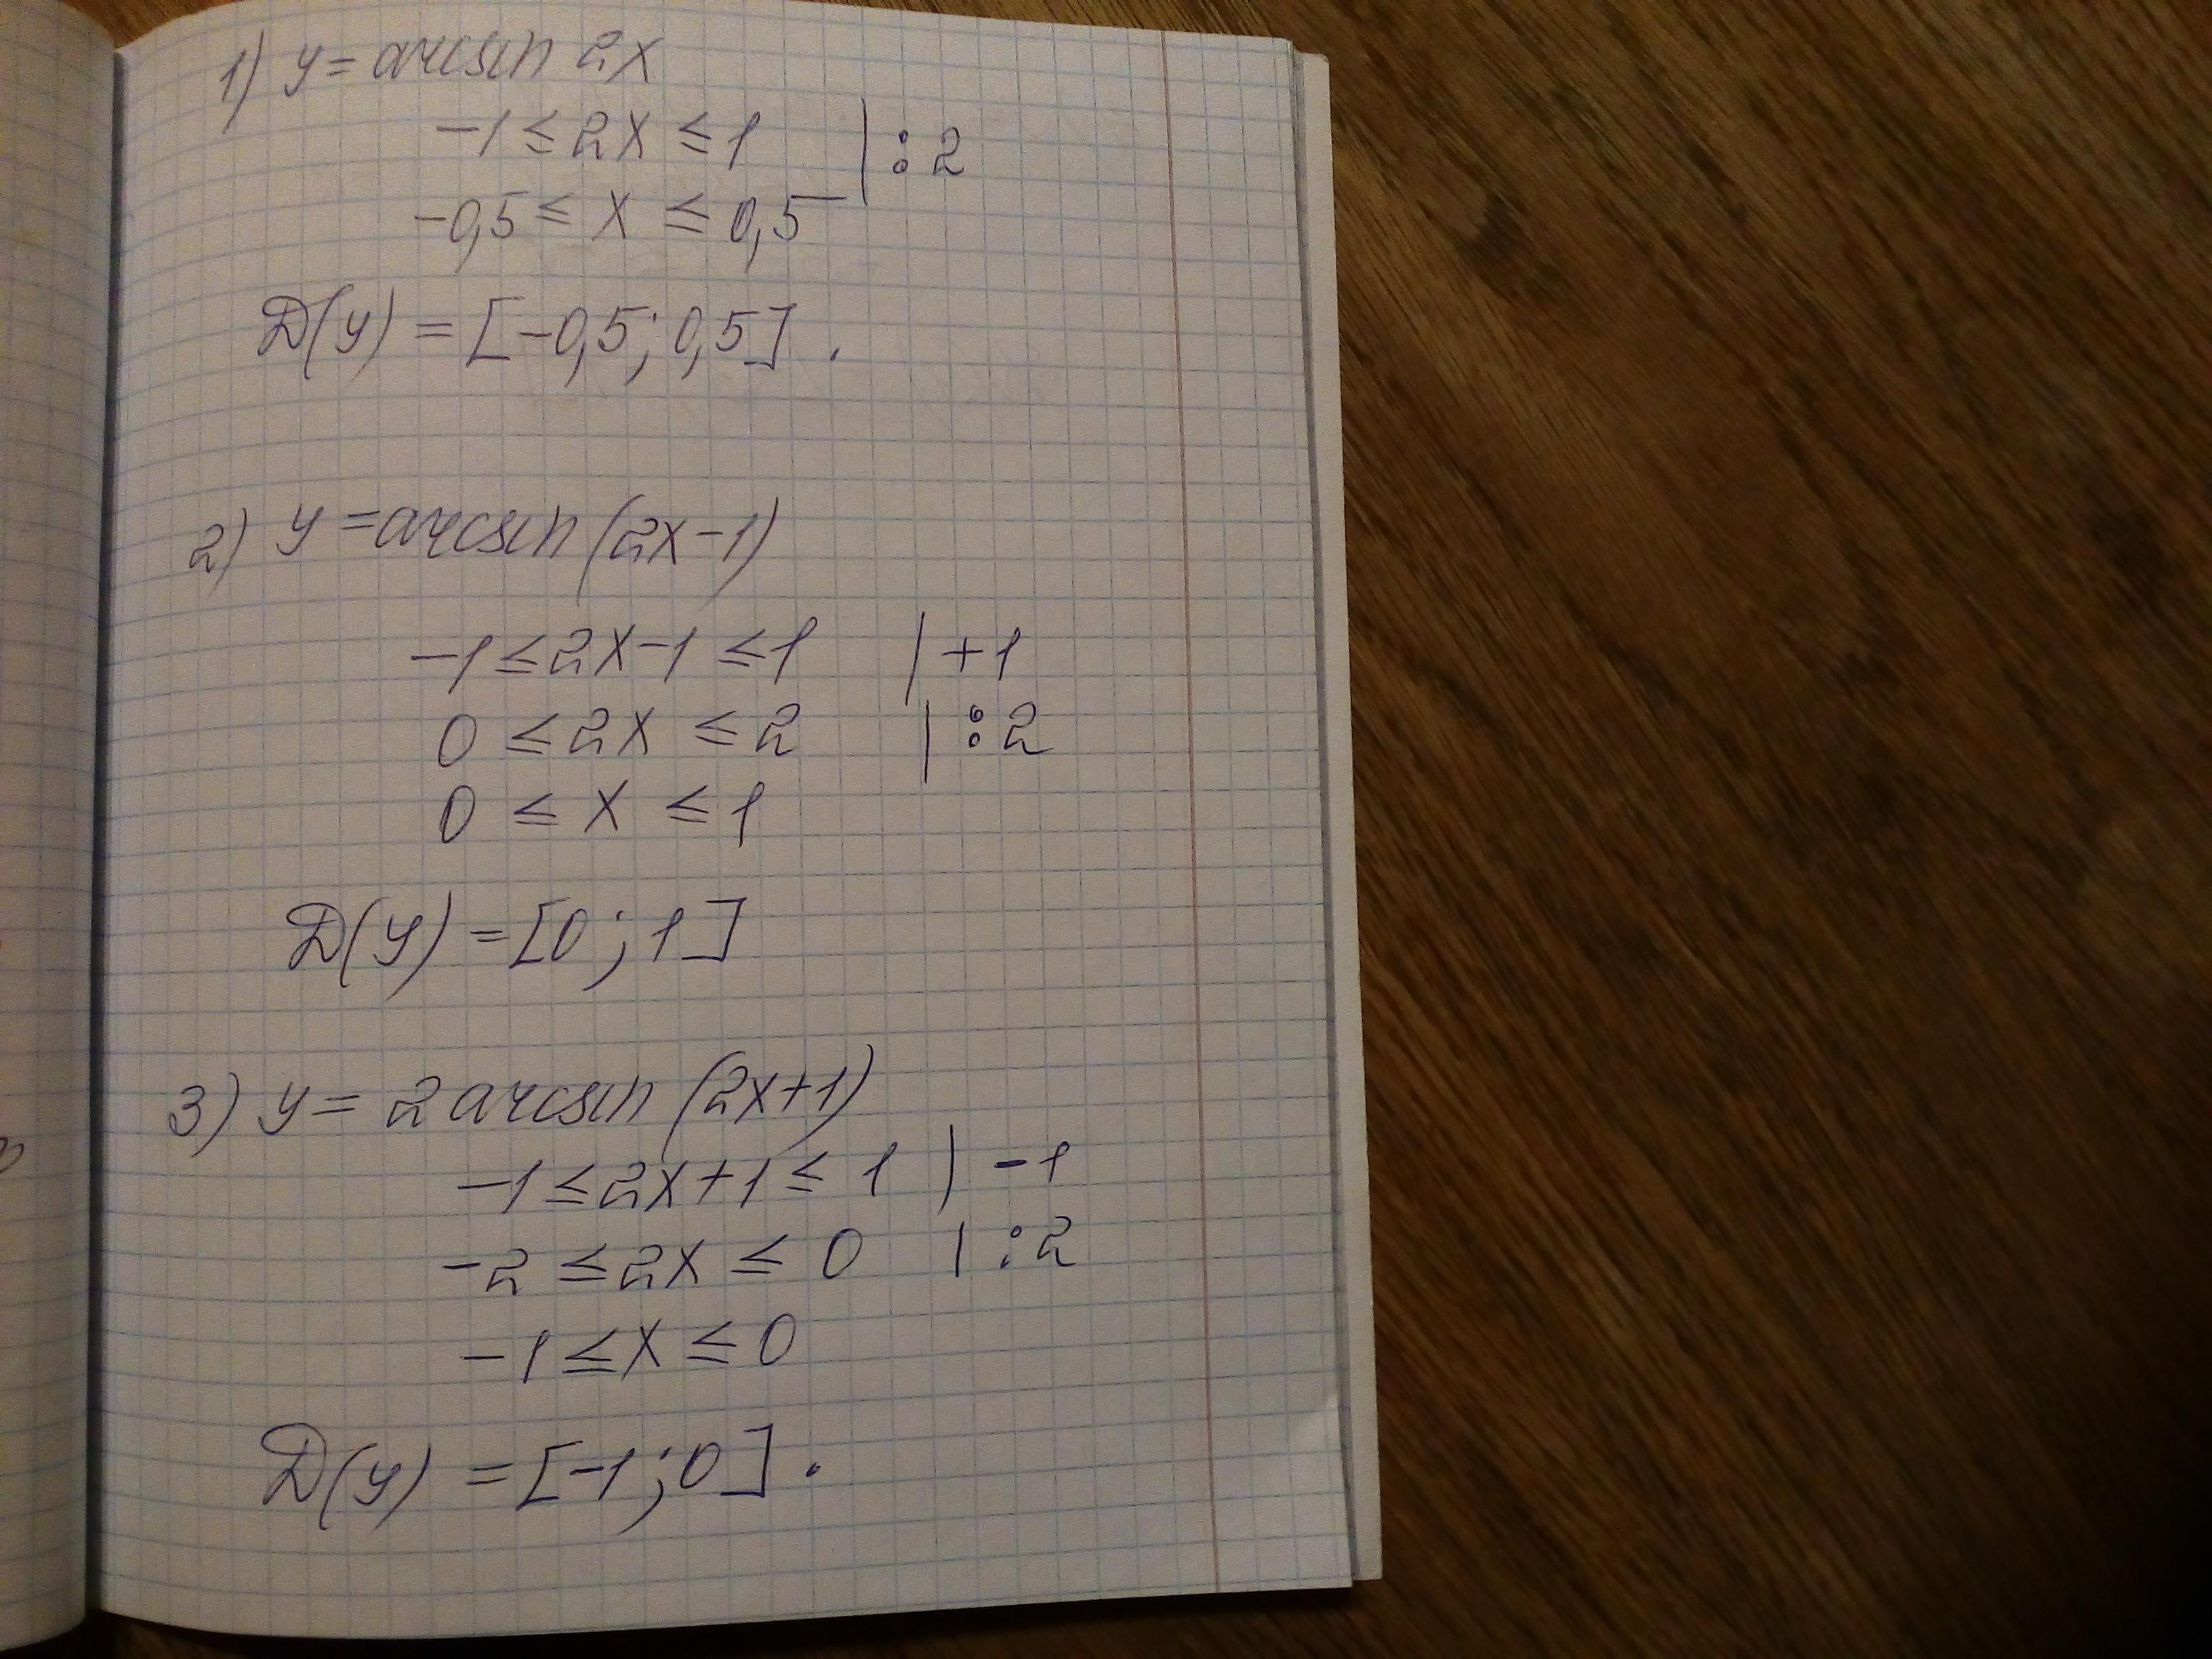 1) y = arcsin 2x
-1 ≤ 2x ≤ 1 | : 2
-0,5 ≤ x ≤ 0,5
D(y) = [-0,5; 0,5].
2) y = arcsin (2x-1)
-1 ≤ 2x-1 ≤ 1 | +1
0 ≤ 2x ≤ 2 | : 2
0 ≤ x ≤ 1
D(y) = [0; 1]
3) y = 2 arcsin (2x+1)
-1 ≤ 2x+1 ≤ 1 | -1
-2 ≤ 2x ≤ 0 | : 2
-1 ≤ x ≤ 0
D(y) = [-1; 0].